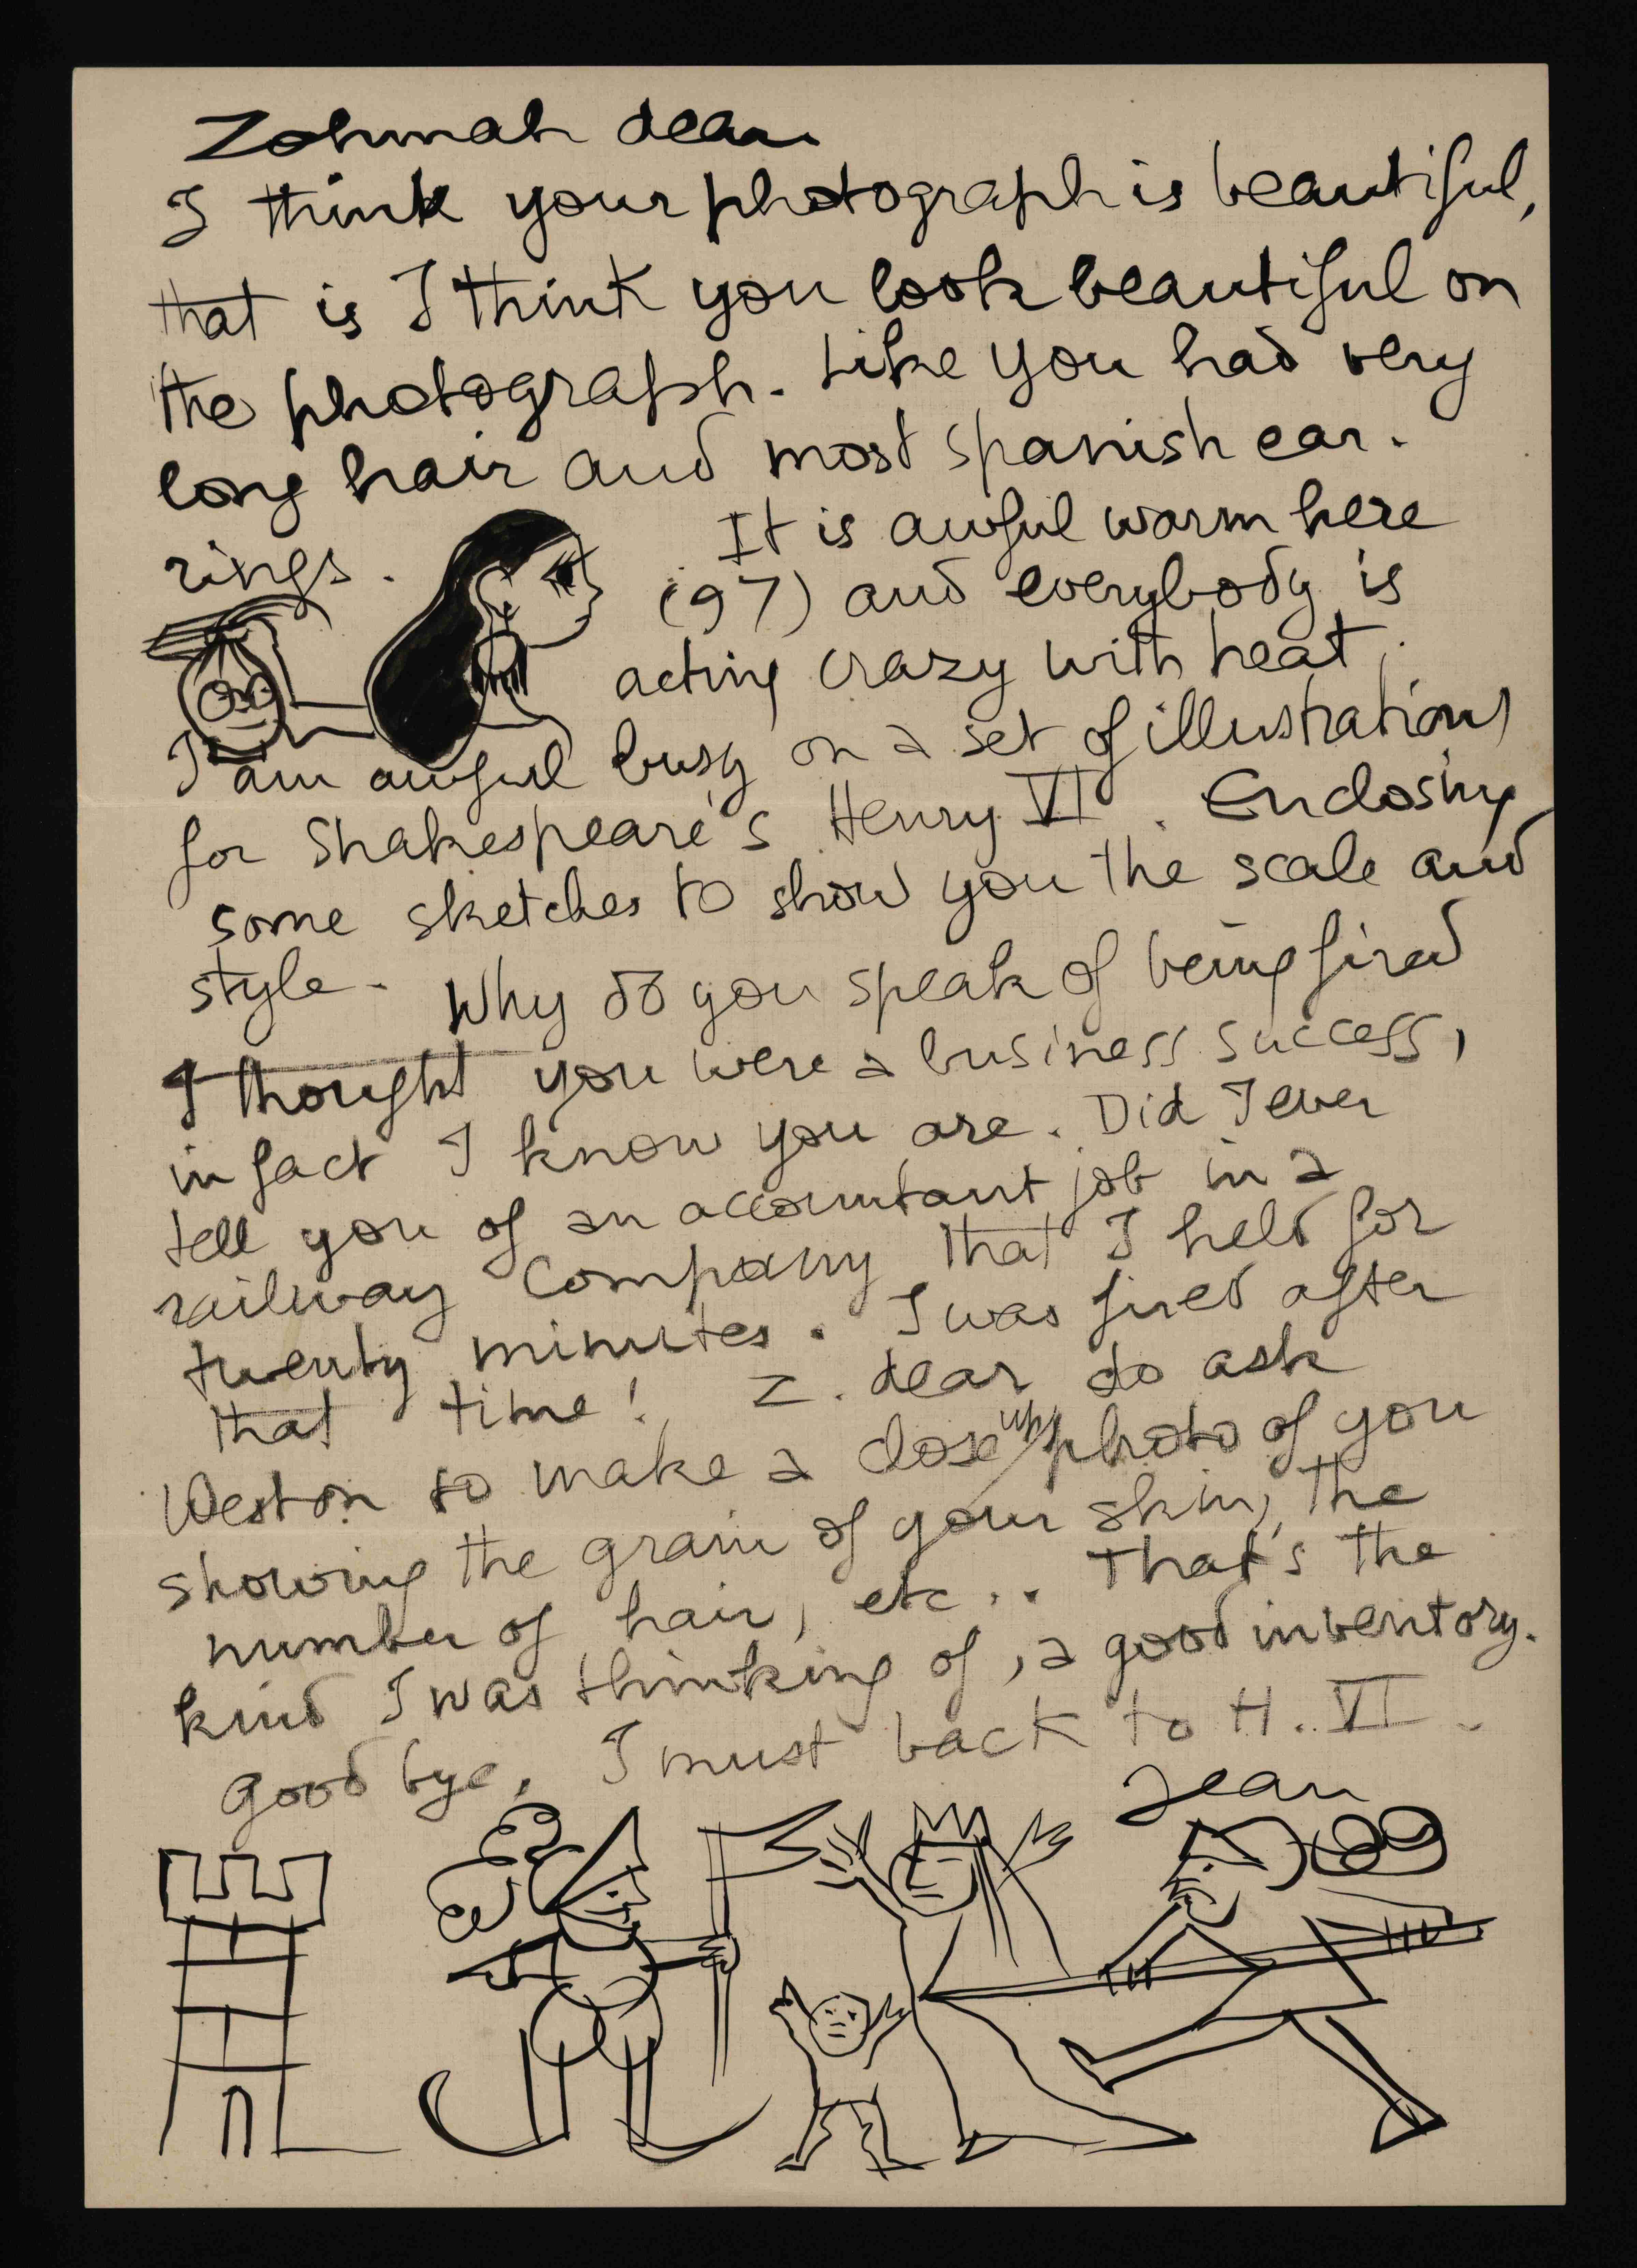 Zohmah dear
I think your photograph is beautiful,
that is I think you look beautiful on
the photograph. Like you had very
long hair and most spanish ear.
rings. It is awful warm here
(97) and everybody is
acting crazy with heat.
I am awful busy on a set of illustrations
for Shakespeare's Henry VI. Enclosing
some sketches to show you the scale and
style. Why do you speak of being fired
I thought you were a business success,
in fact I know you are. Did I ever
tell you of an accountant job in a
railway Company that I held for
twenty minutes. I was fired after
that time! Z. dear do ask
Weston to make a close up photo of you
showing the grain of your skin, the
number of hair, etc.. That's the
kind I was thinking of, a good inventory.
good bye, I must back to H. VI.
Jean